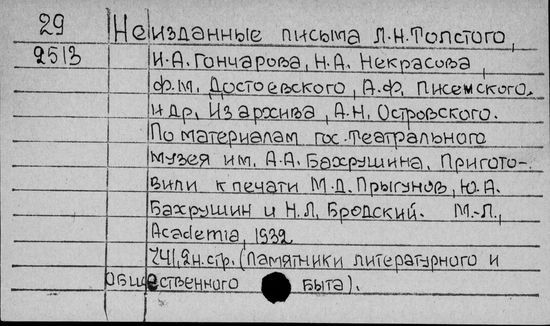 29 Неизданные письма Л.Н.Толстого,
2513 И.А.Гончарова, Н.А. Некрасова,
Ф.М. Достоевского, А.Ф. Писемского.
и др. Из архива, А.Н. Островского.
По материалам гос.театрального
музея им. А.А. Бахрушина. Пригото-
вили к печати М.Д. Прыгунов, Ю.А.
Бахрушин и Н.Л. Бродский. М.-Л.,
Academia, 1932
741, 2н.стр. (Памятники литературного и
общественного быта).